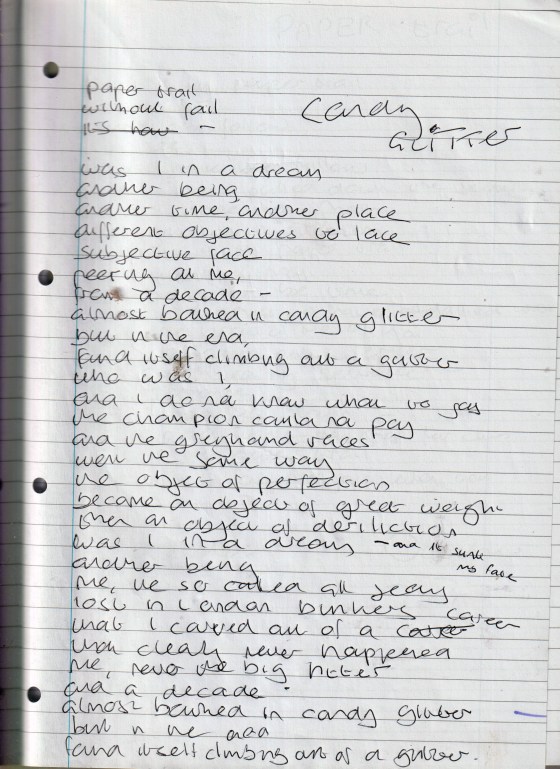 paper trail
without fail
it's how –
candy
GLITTER
was I in a dream
another being
another time, another place
different objectives to face
subjective face
peering at me,
from a decade –
almost bathed in candy glitter
but in the end,
found itself climbing out a gutter
who was I,
and I do not know what to say
the champion could not pay
and the greyhound races
went the same way
the object of perfection
became an object of great weight
then an object of deriliction
was I in a dream – and it sunk my face
another being
me, the so called all
lost in London bunkers
that I carved out of a career
which clearly never happened
me, never the big hitter
and a decade
almost bathed in candy glitter
but in the end
found itself climbing out of a gutter.